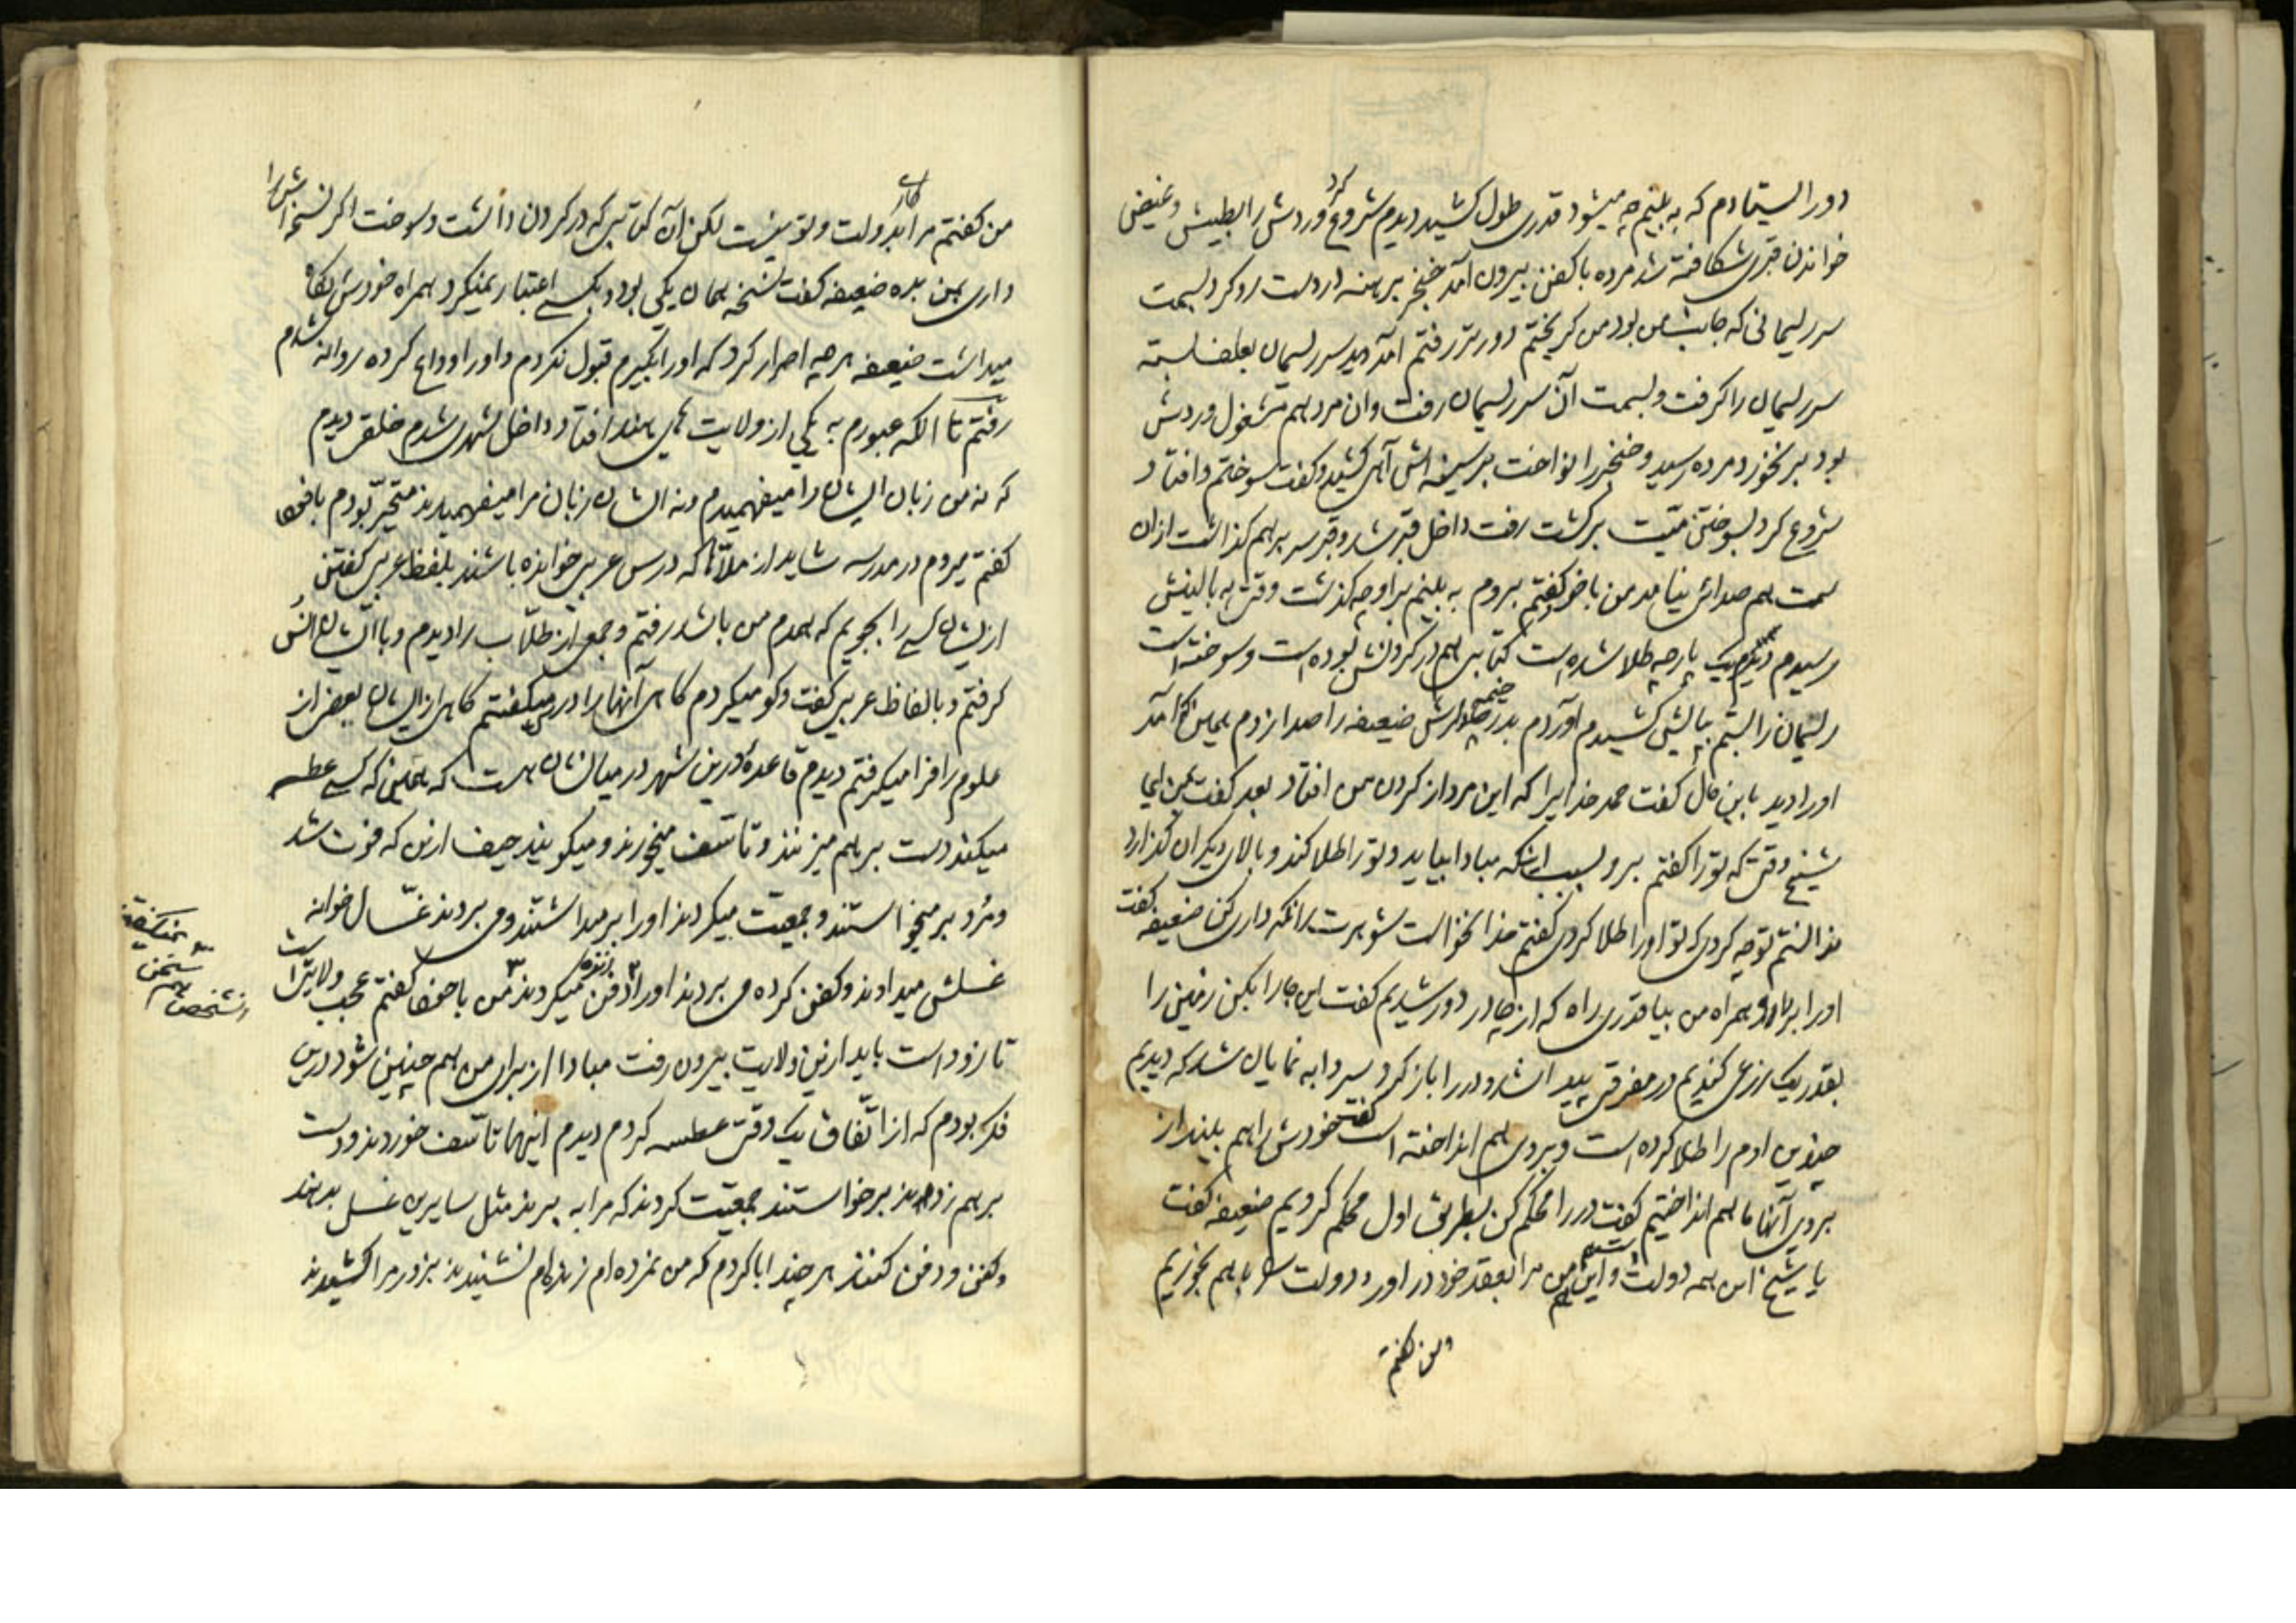 دور ایستادم که به بینم چه میشود قدری طول کشید دیدم شروع کرد وردش را بطیش و غیض
خواندن قبری شکافته شد مرده با کفن بیرون آمد خنجر برهنه در دست رو کرد بسمت
سر ریسمانی که جانب من بود من کریختم دورتر رفتم آمد دید سر ریسمان بعلف بسته
سر ریسمان را کرفت و بسمت آن سر ریسمان رفت و ان مرد هم مشغول وردش
بود بر نخورد مرده رسید و خنجر را نواخت بر سینه اش آهی کشید و کفت سوختم و افتاد
شروع کرد بسوختن میّت برکشت رفت داخل قبر شد و قبر سر بر هم کذاشت از ان
سمت هم صدائی نیامد من با خود کفتم بروم به بینم بر او چه کذشت وقتی به بالینش
رسیدم دیدم یک پارچه طلا شده است کتابی هم در کردنش بوده است و سوخته است
ریسمان را بستم بپایش کشیدم آوردم بدر خیمه ضعیفه را صدا زدم همین که آمد
او را دید باین حال کفت حمد خدایرا که این مرد از کردن من افتاد بعد کفت بمن ای
شیخ وقتی که تو را کفتم برو بسبب اینکه مبادا بیاید و تو را طلا کند و بالای دیکران کذارد
ندانستم توچه کردی که تو او را طلا کردی کفتم خدا نخواست شوهرت را نکه داری کن ضعیفه کفت
او را بردار و همراه من بیا قدری راه که از چادر دور شدیم کفت این جا را بکن زمین را
بقدر یک ذرعی کندیم در مفرقی پیدا شد و در را باز کرد سردابه نمایان شد که دیدیم
چندین ادم را طلا کرده است و بر روی هم انداخته است کفت خودش را هم بینداز
بر روی آنها ما هم انداختیم کفت در را محکم کن بطریق اول محکم کردیم ضعیفه کفت
یا شیخ این همه دولت و این هم من مرا بعقد خود در اور و دولت را با هم بخوریم
من کفتم
من کفتم مرا بدولت و تو کاری نیست لکن آن کتابی که در کردن داشت و سوخت اکر نسخه اش را
داری بمن بده ضعیفه کفت نسخه همان یکی بود و بکسی اعتبار نمیکرد همراه خودش نکاه
میداشت ضعیفه هر چه اصرار کرد که او را بکیرم قبول نکردم و او را وداع کرده روانه شدم
رفتم تا انکه عبورم به یکی از ولایت های هند افتاد داخل شهری شدم خلقی دیدم
که نه من زبان ایشان را میفهمیدم و نه ایشان زبان مرا میفهمیدند متحیّر بودم با خود
کفتم میروم در مدرسه شاید از ملّاها که درس عربی خوانده باشند بلفظ عربی کفتن
از ایشان کسی را بجویم که همدم من باشد رفتم و جمعی از طلّاب را دیدم و با ایشان انس
کرفتم و بالفاظ عربی کفت و کو میکردم کاهی آنها را درس میکفتم کاهی از ایشان بعض از
علوم را فرا میکرفتم دیدم قاعدهٔ درین شهر در میان شان هست که همین که کسی عطسه
میکند دست بر هم میزنند و تاسّف میخورند و میکویند حیف ازین که فوت شد
و مرد بر میخواستند و جمعیّت میکردند او را بر میداشتند و می بردند غسّال خوانه
غسلش میدادند و کفن کرده می بردند او را زنده دفن میکردند من با خود کفتم عجب ولایتی است
تا زود است باید ازین ولایت بیرون رفت مبادا از برای من هم چنین شود درین
فکر بودم که از اتّفاق یک وقتی عطسه کردم دیدم اینها تاسّف خوردند و دست
بر هم زدند بر خواستند جمعیّت کردند که مرا به برند مثل سایرین غسل بدهند
و کفن و دفن کنند هر چند ابا کردم که من نمرده ام زنده ام نشنیدند بزور مرا کشیدند